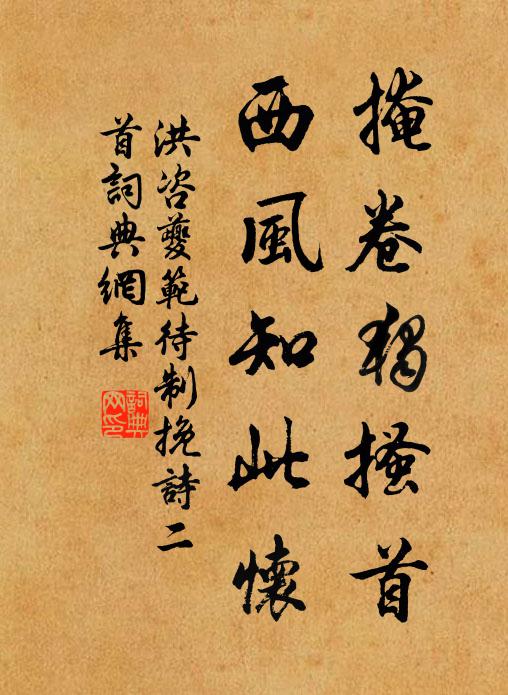 掩卷獨搔首
西風知此懷
洪咨夔範待制挽詩二
首詞典網集
詞典
网印